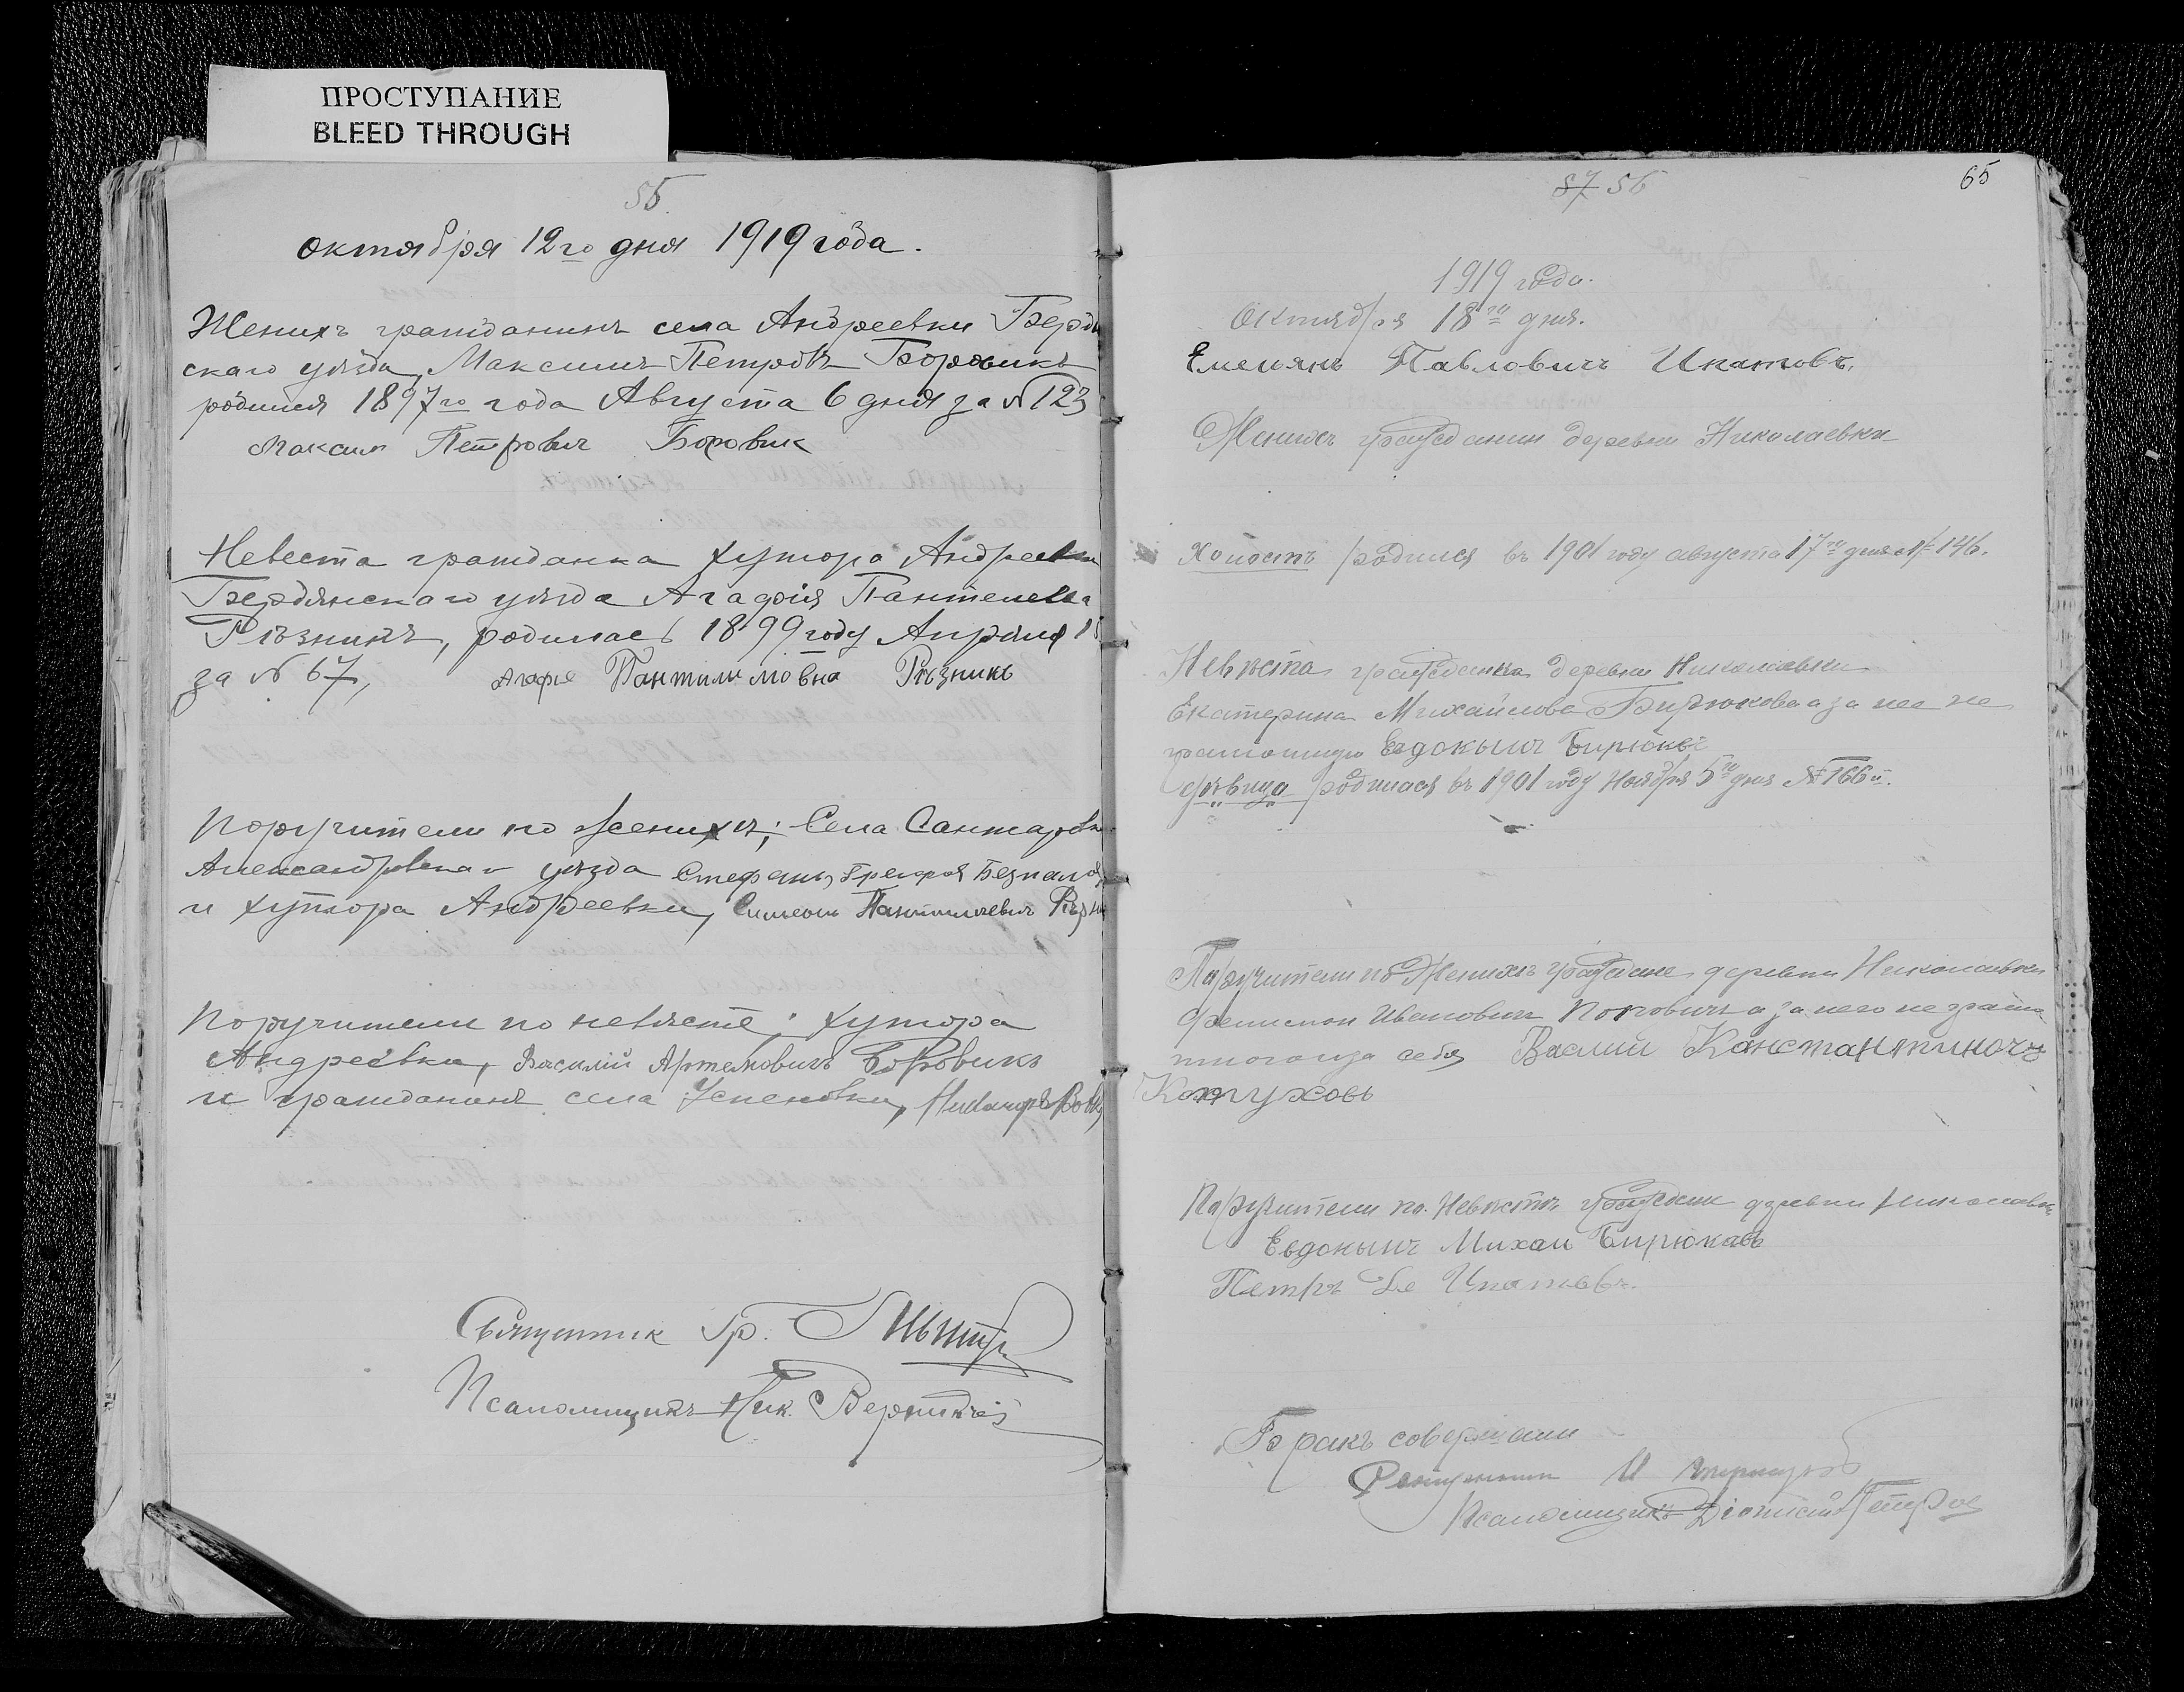 ПРОСТУПАНИЕ
BLEED THROUGH
55
октября 12го дня 1919 года.
Женихъ гражданинъ села Андреевки Бердян
скаго уѣзда, Максимъ Петровъ Боровикъ
родился 1897го года Августа 6 дня за № 123
Максим Петрович Боровик
Невеста гражданка хутора Андреевки
Бердянскаго уѣзда Агафія Пантелеева
Рѣзникъ, родилась 1899 году Апрѣля 15
за № 67, Агафіе Пантилимовна Рѣзникъ
Поручители по женихѣ; Села Сантаровки
Александровскаго уѣзда Стефанъ
и хутора Андреевки, Симеонъ Пантилиевич Рѣзник
Поручители по невѣсте; хутора
Андреевки, Василій Артемовичъ Боровикъ
и гражданинъ села Успеновки,
Священник Гр.
Псаломщикъ Ник.
87 56
65
1919 года.
Октября 18го дня.
Емельянъ Павловичъ Ипатовъ.
Женихъ гражданин деревни Николаевки
Холостъ родился въ 1901 году августа 17го дня № 146.
Невѣста гражданка деревни Николаевки
Екатерина Михайлова Бирюкова а за нее не
грамотную Евдокымъ Бирюкъв
дѣвица родилася въ 1901 году Ноября 5го дня № 166й.
Паручители по Женихѣ граждане деревни Николаевки
Филимон Ивановичъ Поповичъ а за него не грамо
тного из себя Васили Канстантиночъ
Кожуховъ
Паручители по Невѣстѣ граждани деревни Николаевки
Евдокымъ Михаи Бирюкавъ
Петръ Ипатовъ.
Бракъ совершали
Священник И
Псаломщикъ Діонисій Петров